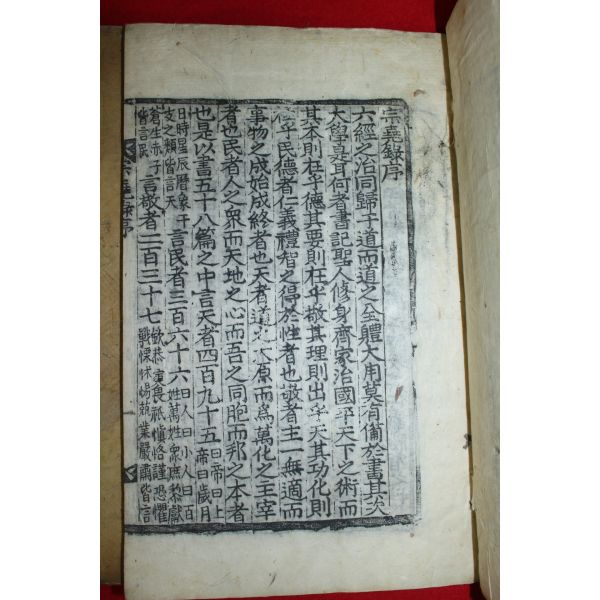 宗堯錄序
六經之治同歸于道而道之全體大用莫有備於書其次
大學是耳何者書記聖人修身齊家治國平天下之術而
其本則在乎德其要則在乎敬其理則出乎天其功化則
在乎民德者仁義禮智之得於性者也敬者主一無適而
事物之成始成終者也天者道之大原而爲萬化之主宰
者也民者人之衆而天地之心而吾之同胞而邦之本者
也是以書五十八篇之中言天者四百九十五曰帝曰上帝曰歲月
日時星辰曆象干支之類皆言天言民者三百六十六曰人曰小人曰百姓萬姓衆庶黎獻
蒼生赤子皆言民言敬者二百三十七欽恭寅畏祇愼恪謹恐懼戰慄怵惕兢業嚴肅皆言
宗堯錄序